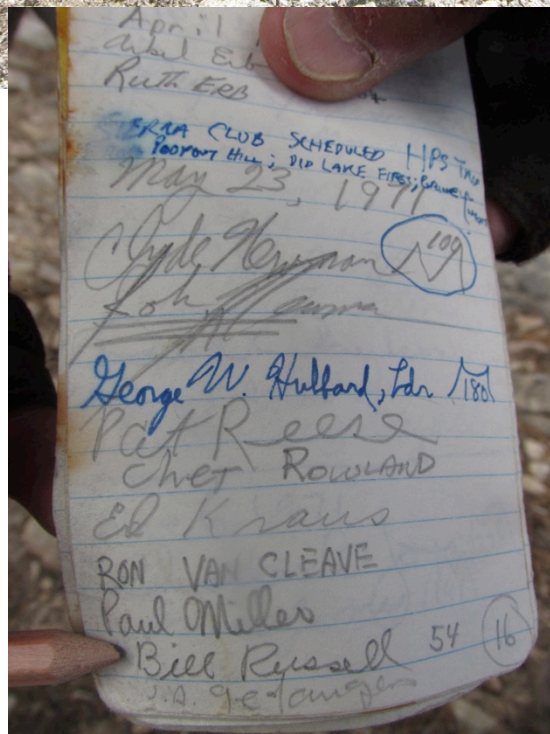 April
Ruth ERB
SIERRA CLUB SCHEDULED HPS TRIP
HILL; DID LAKE FIRST;
May 23, 1971
Clyde
100
George W. Hubbard, Ldr 180
Pat Reese
Chet ROWLAND
Ed Kraus
RON VAN CLEAVE
Paul Miller
Bill Russell 54 16